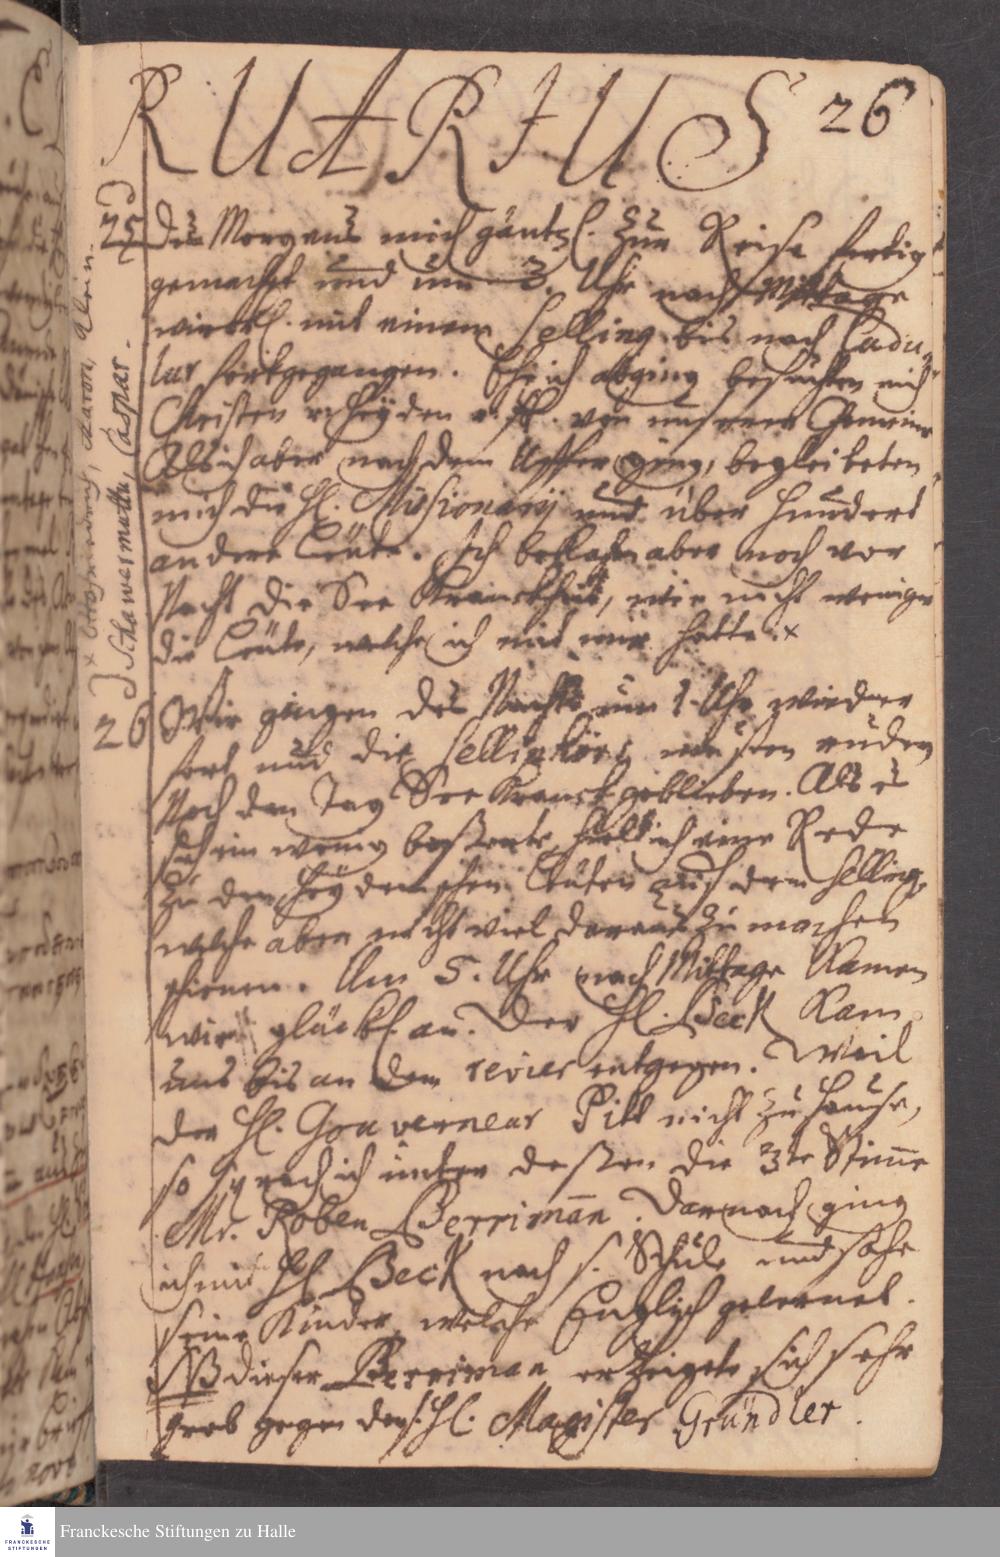 RUARIUS 26
25 Des Morgens mich gäntzl. zur Reise fertig
gemacht und um 3. Uhr nach Mittage
würckl. mit einem Selling bis nach Cadu-
lur fortgegangen. Ehe ich abging besuchten mich
Christen u. Heyden von unserer Gemeine
Als ich aber nach dem Uffer ging, begleiteten
mich die H. Missionarii und über hundert
andere Leute. Ich bekahm aber noch vor
Nacht die See Kranckheit, wie nicht weniger
die Leute, welche ich mit mir hatte. x
x Aaron,
Schawrimuttu, Caspar.
26 Wir gingen des Nachts um 1. Uhr wieder
fort und die Sellinkörs musten rudern
Noch den Tag See Kranck geblieben. Als es
sich ein wenig besserte, hielt ich eine Rede
zu den Heydenischen Leuten auf dem Selling,
welche aber nicht viel daraus zu machen
schienen. Um 5. Uhr nach Mittage kamen
wir glückl. an. Der H. Beck kam
uns bis an den revier entgegen. Weil
der H. Gouverneur Pitt nicht zu Hause,
so sprach ich unter deßen die 3te Stimme
Mr. Roben Berriman. Darnach ging
ich mit H. Beck nach s. Schule und sahe
seine Kinder, welche Englisch gelernet.
NB dieser Berriman erzeigete sich sehr
grob gegen den H. Magister Gründler.
Franckesche Stiftungen zu Halle
FRANCKESCHE
STIFTUNGEN